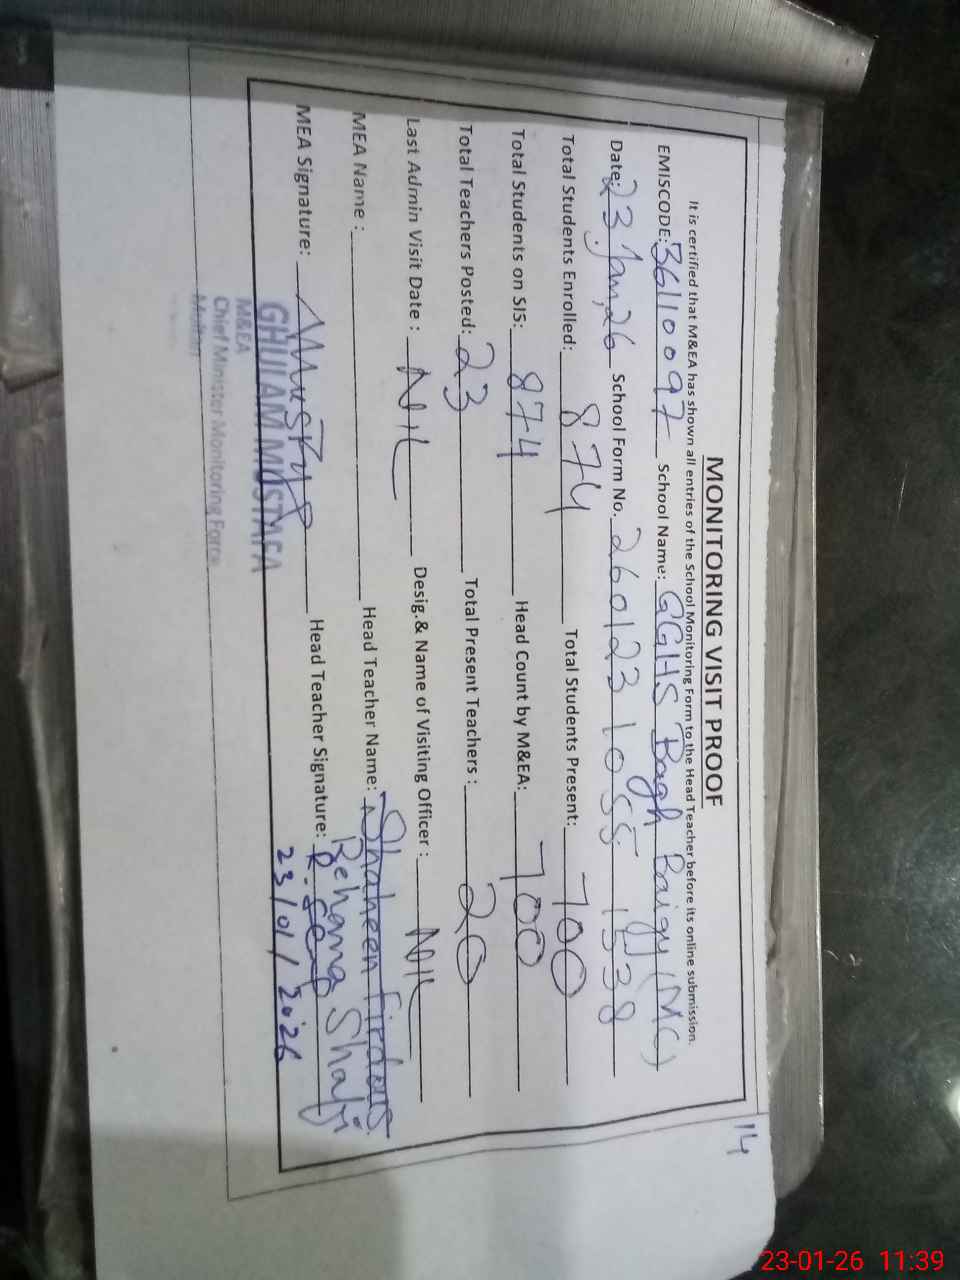 14
MONITORING VISIT PROOF
It is certified that M&EA has shown all entries of the School Monitoring Form to the Head Teacher before its online submission.
EMISCODE: 36110097 School Name: GGHS Bagh Baigy (MC)
Date: 23.Jan,26 School Form No. 26012310551538
Total Students Enrolled: 874 Total Students Present: 700
Total Students on SIS: 874 Head Count by M&EA: 700
Total Teachers Posted: 23 Total Present Teachers : 20
Last Admin Visit Date : NIL Desig.& Name of Visiting Officer : NIL
MEA Name : Head Teacher Name: Shaheen Firdous
Rehana Shafi
MEA Signature: Head Teacher Signature:
23/01/2026
GHULAM MUSTAFA
M&EA
Chief Minister Monitoring Force
Multan
23-01-26 11:39